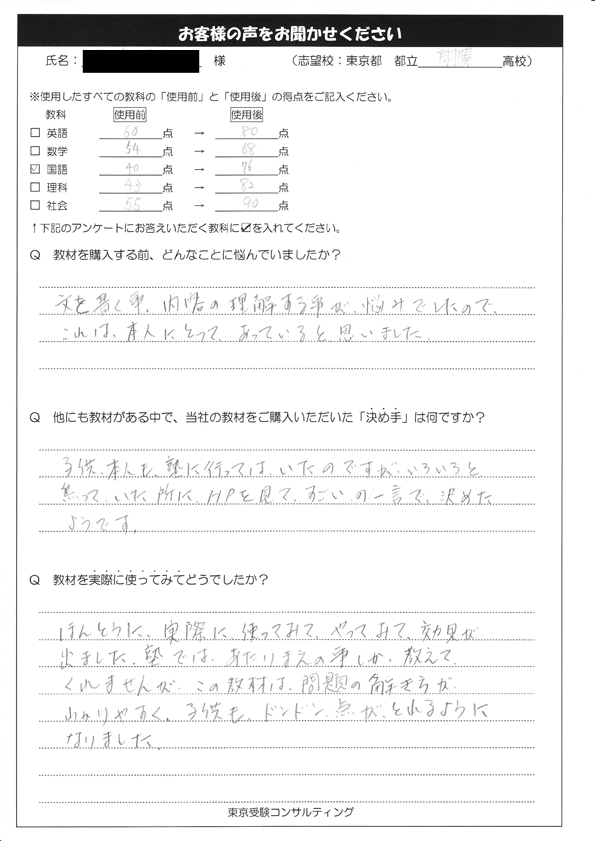 お客様の声をお聞かせください
氏名： 様 （志望校：東京都 都立 高校）
※使用したすべての教科の「使用前」と「使用後」の得点をご記入ください。
教科 使用前 使用後
□ 英語 60 点 → 80 点
□ 数学 54 点 → 68 点
☑ 国語 40 点 → 76 点
□ 理科 43 点 → 82 点
□ 社会 55 点 → 90 点
↑下記のアンケートにお答えいただく教科に☑を入れてください。
Q 教材を購入する前、どんなことに悩んでいましたか？
文を書く事、内容の理解する事が、悩みでしたので、
これは、本人にとって、あっていると思いました。
Q 他にも教材がある中で、当社の教材をご購入いただいた「決め手」は何ですか？
子供、本人も、塾に行っては、いたのですが、いろいろと
焦って、いた所に、HPを見て、すごいの一言で、決めた
ようです。
Q 教材を実際に使ってみてどうでしたか？
ほんとうに、実際に、使ってみて、やってみて、効果が
出ました。塾では、あたりまえの事しか、教えて
くれませんが、この教材は、問題の解き方が、
わかりやすく、子供も、ドンドン、点が、とれるように
なりました。
東京受験コンサルティング